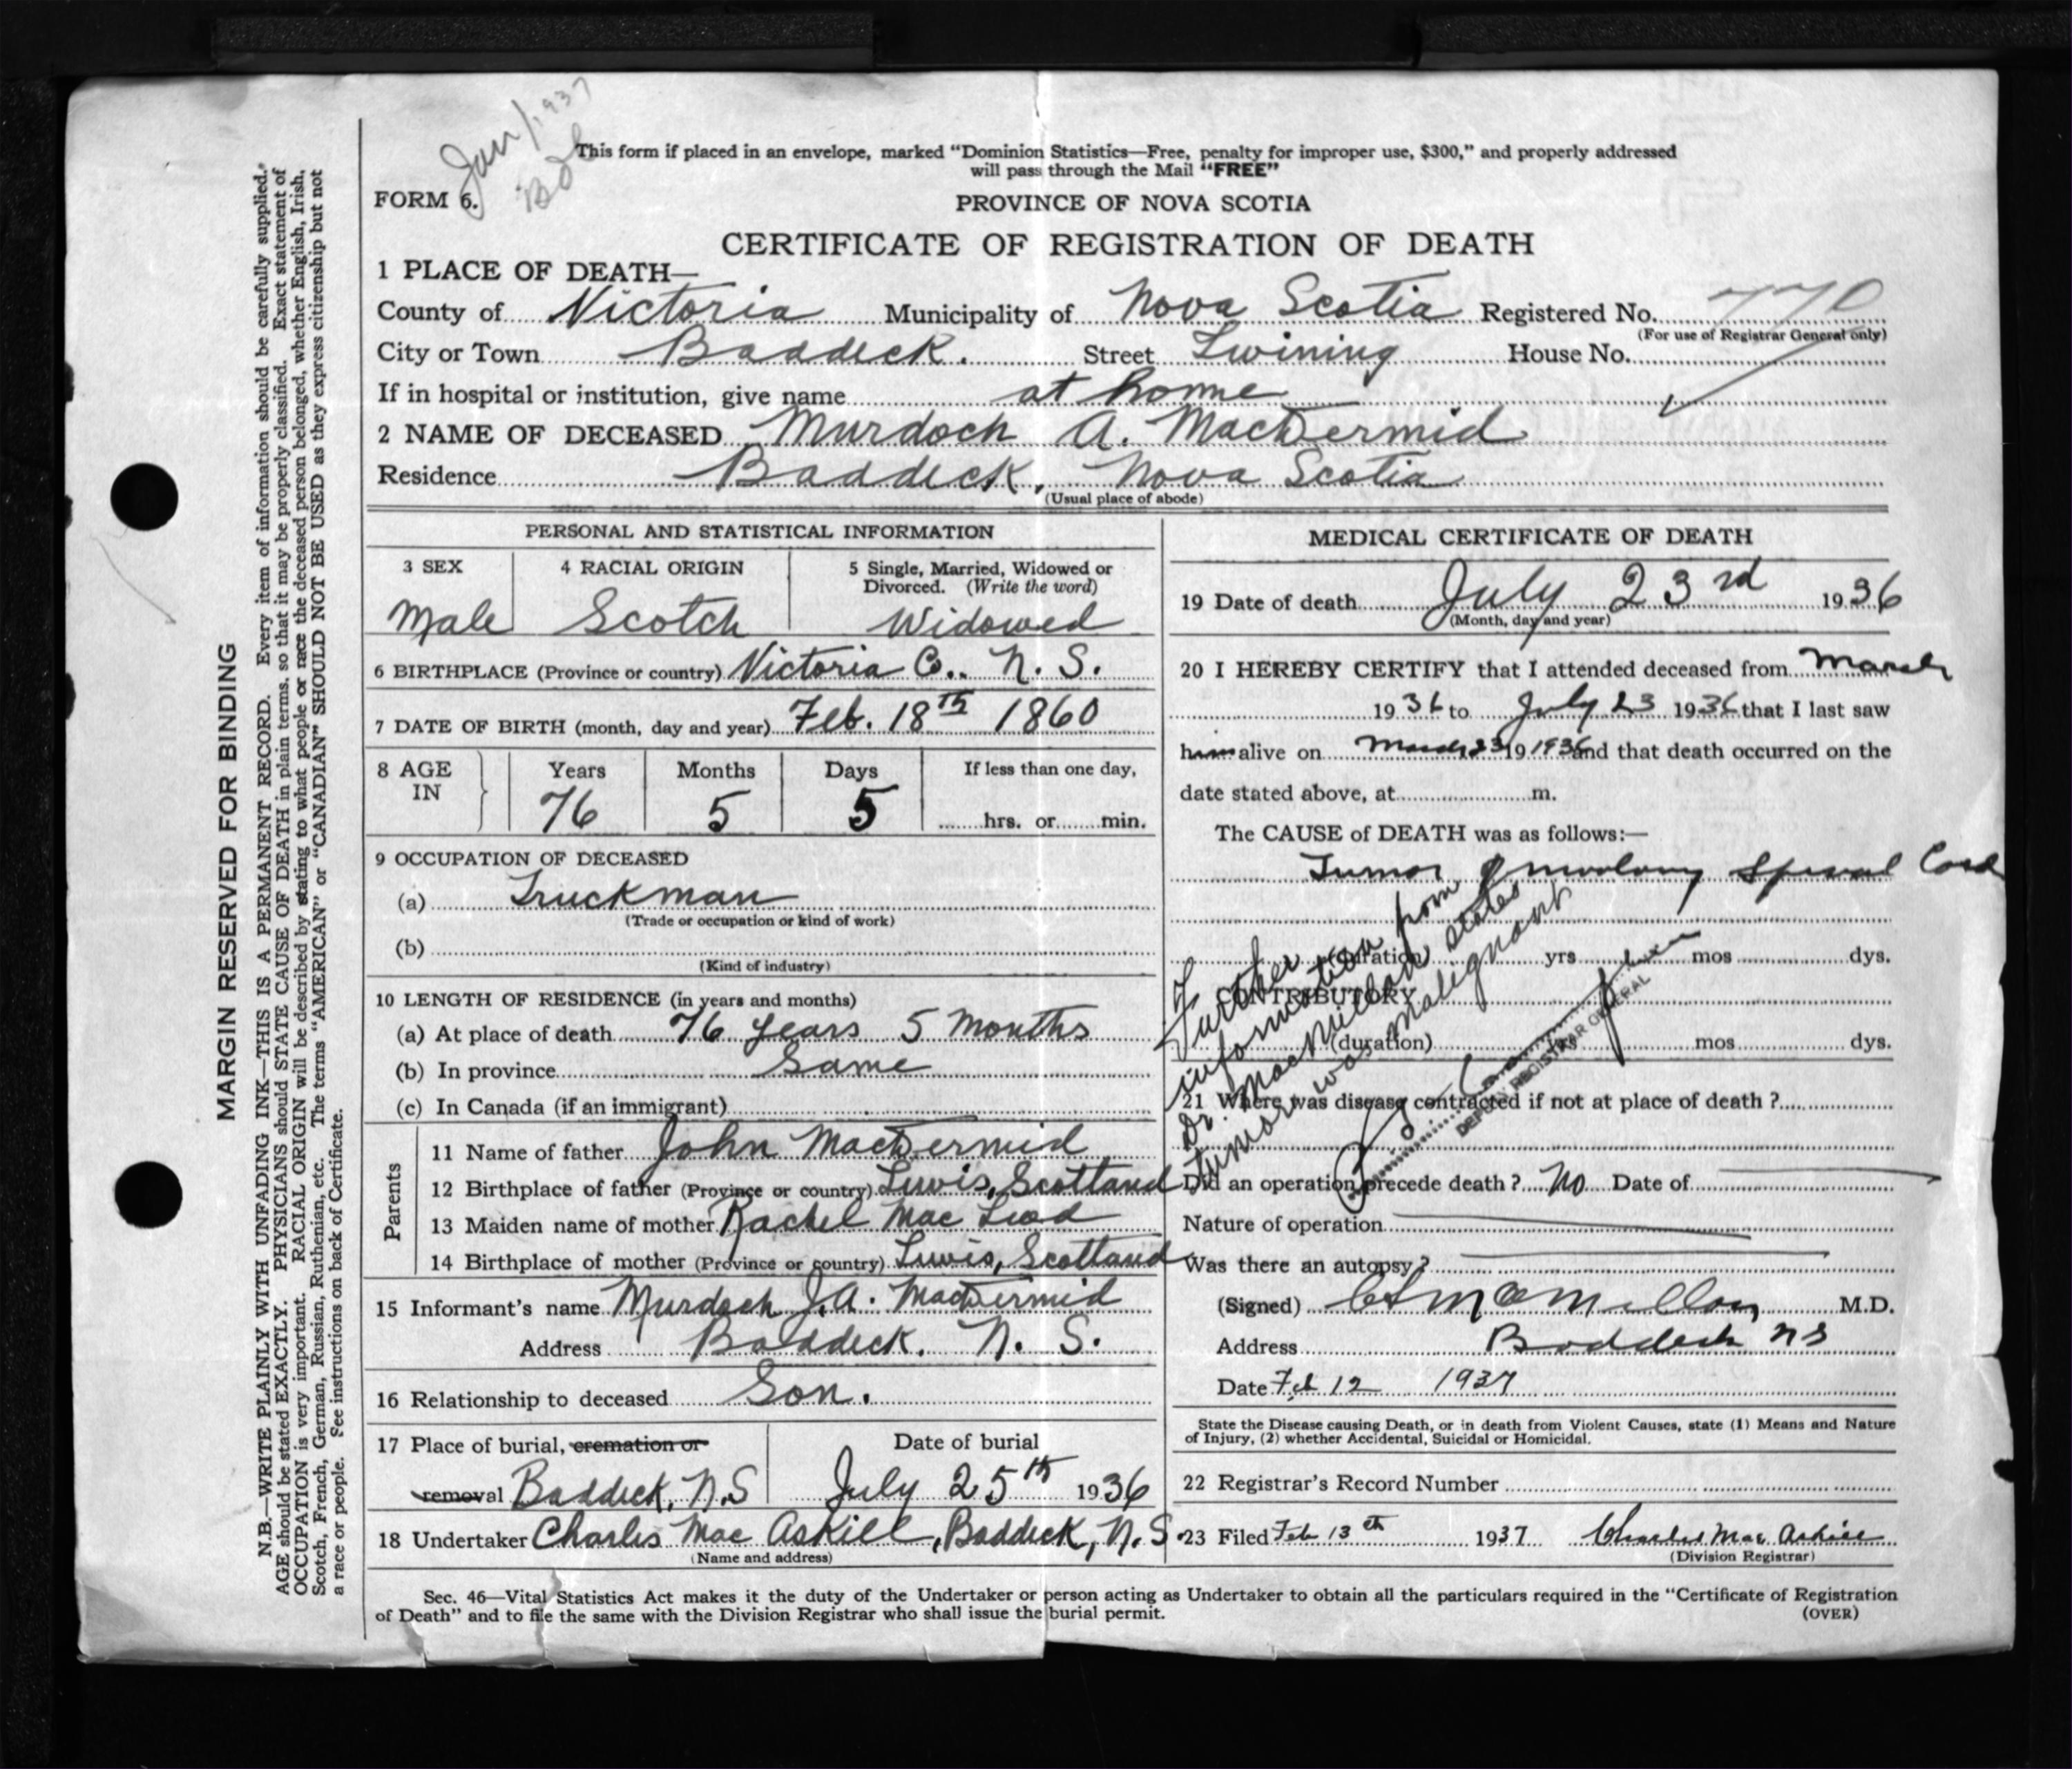 Jan/1937
This form if placed in an envelope, marked "Dominion Statistics—Free, penalty for improper use, $300," and properly addressed
will pass through the Mail "FREE"
FORM 6.
PROVINCE OF NOVA SCOTIA
CERTIFICATE OF REGISTRATION OF DEATH
1 PLACE OF DEATH—
County of Victoria Municipality of Nova Scotia Registered No. 770
(For use of Registrar General only)
City or Town Baddeck. Street Twining House No.
If in hospital or institution, give name at home
2 NAME OF DECEASED Murdoch A. MacDermid
Residence Baddeck, Nova Scotia
(Usual place of abode)
PERSONAL AND STATISTICAL INFORMATION
3 SEX
Male
4 RACIAL ORIGIN
Scotch
5 Single, Married, Widowed or
Divorced. (Write the word)
Widowed
6 BIRTHPLACE (Province or country) Victoria Co., N. S.
7 DATE OF BIRTH (month, day and year) Feb. 18th 1860
8 AGE IN
Years Months Days If less than one day,
76 5 5 hrs. or min.
9 OCCUPATION OF DECEASED
(a) Truckman
(Trade or occupation or kind of work)
(b)
(Kind of industry)
10 LENGTH OF RESIDENCE (in years and months)
(a) At place of death 76 years 5 months
(b) In province Same
(c) In Canada (if an immigrant)
Parents
11 Name of father John MacDermid
12 Birthplace of father (Province or country) Lewis, Scotland
13 Maiden name of mother Rachel Mac Leod
14 Birthplace of mother (Province or country) Lewis, Scotland
15 Informant's name Murdoch J.A. MacDermid
Address Baddeck. N. S.
16 Relationship to deceased Son.
17 Place of burial, cremation or
removal Baddeck, N.S
Date of burial
July 25th 1936
18 Undertaker Charles Mac Askill, Baddeck, N.S.
(Name and address)
MEDICAL CERTIFICATE OF DEATH
19 Date of death July 23rd 1936
(Month, day and year)
20 I HEREBY CERTIFY that I attended deceased from March
1936 to July 23 1936 that I last saw
him alive on March 23 19 1936 and that death occurred on the
date stated above, at m.
The CAUSE of DEATH was as follows:—
Tumor involving Spinal Cord
(duration) yrs mos dys.
CONTRIBUTORY
(duration) yrs mos dys.
Further
information from
Dr. MacMillan states
tumor was malignant
DEPUTY REGISTRAR GENERAL
21 Where was disease contracted if not at place of death ?
Did an operation precede death ? No Date of
Nature of operation
Was there an autopsy ?
(Signed) McMillan M.D.
Address Baddeck NS
Date Feb 12 1937
State the Disease causing Death, or in death from Violent Causes, state (1) Means and Nature
of Injury, (2) whether Accidental, Suicidal or Homicidal.
22 Registrar's Record Number
23 Filed Feb 13th 1937 Charles Mac Askill
(Division Registrar)
Sec. 46—Vital Statistics Act makes it the duty of the Undertaker or person acting as Undertaker to obtain all the particulars required in the "Certificate of Registration
of Death" and to file the same with the Division Registrar who shall issue the burial permit.
(OVER)
MARGIN RESERVED FOR BINDING
N.B.—WRITE PLAINLY WITH UNFADING INK—THIS IS A PERMANENT RECORD. Every item of information should be carefully supplied.
AGE should be stated EXACTLY. PHYSICIANS should STATE CAUSE OF DEATH in plain terms, so that it may be properly classified. Exact statement of
OCCUPATION is very important. RACIAL ORIGIN will be described by stating to what people or race the deceased person belonged, whether English, Irish,
Scotch, French, German, Russian, Ruthenian, etc. The terms "AMERICAN" or "CANADIAN" SHOULD NOT BE USED as they express citizenship but not
a race or people. See instructions on back of Certificate.